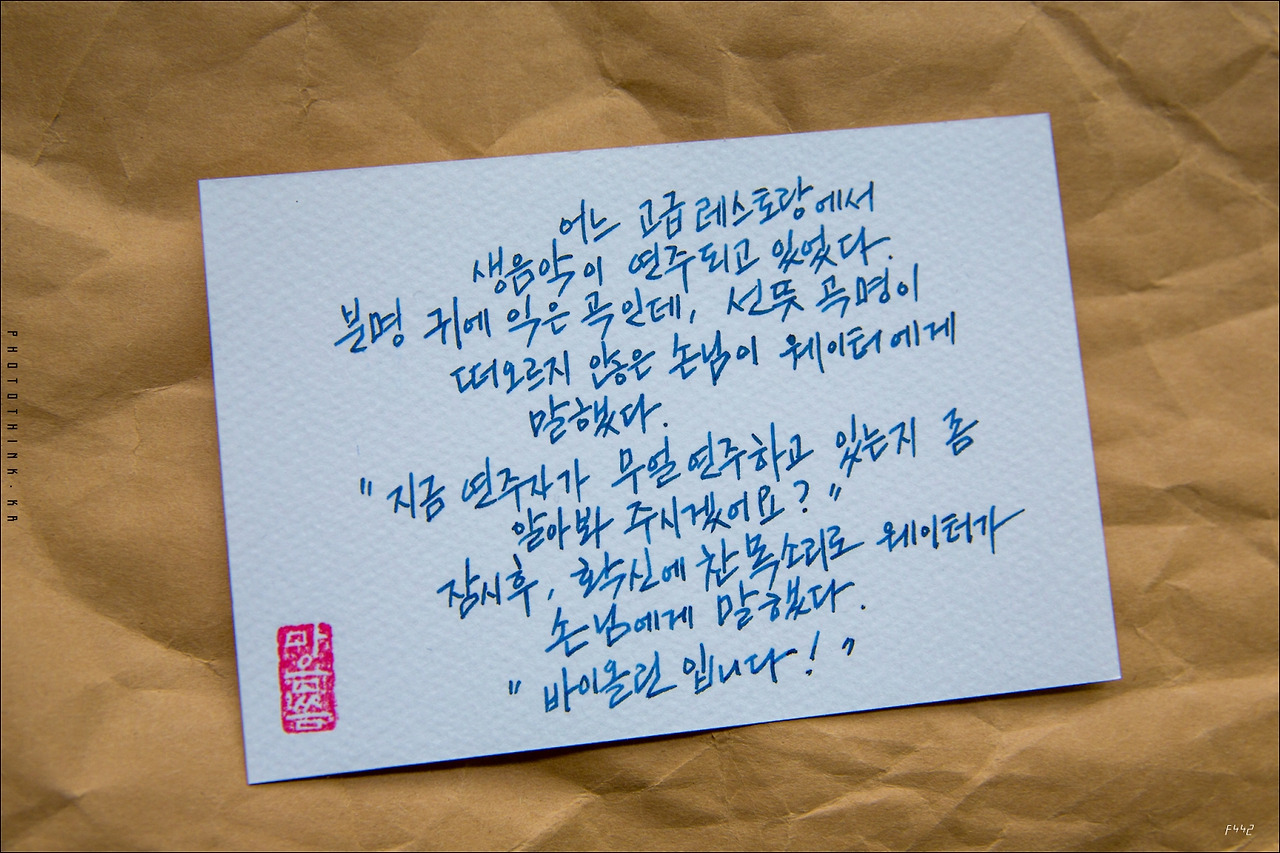 어느 고급 레스토랑에서
생음악이 연주되고 있었다.
분명 귀에 익은 곡인데, 선뜻 곡명이
떠오르지 않은 손님이 웨이터에게
말했다.
"지금 연주자가 무얼 연주하고 있는지 좀
알아봐 주시겠어요?"
잠시후, 확신에 찬 목소리로 웨이터가
손님에게 말했다.
"바이올린 입니다!"
PHOTOTHINK.KA
F442